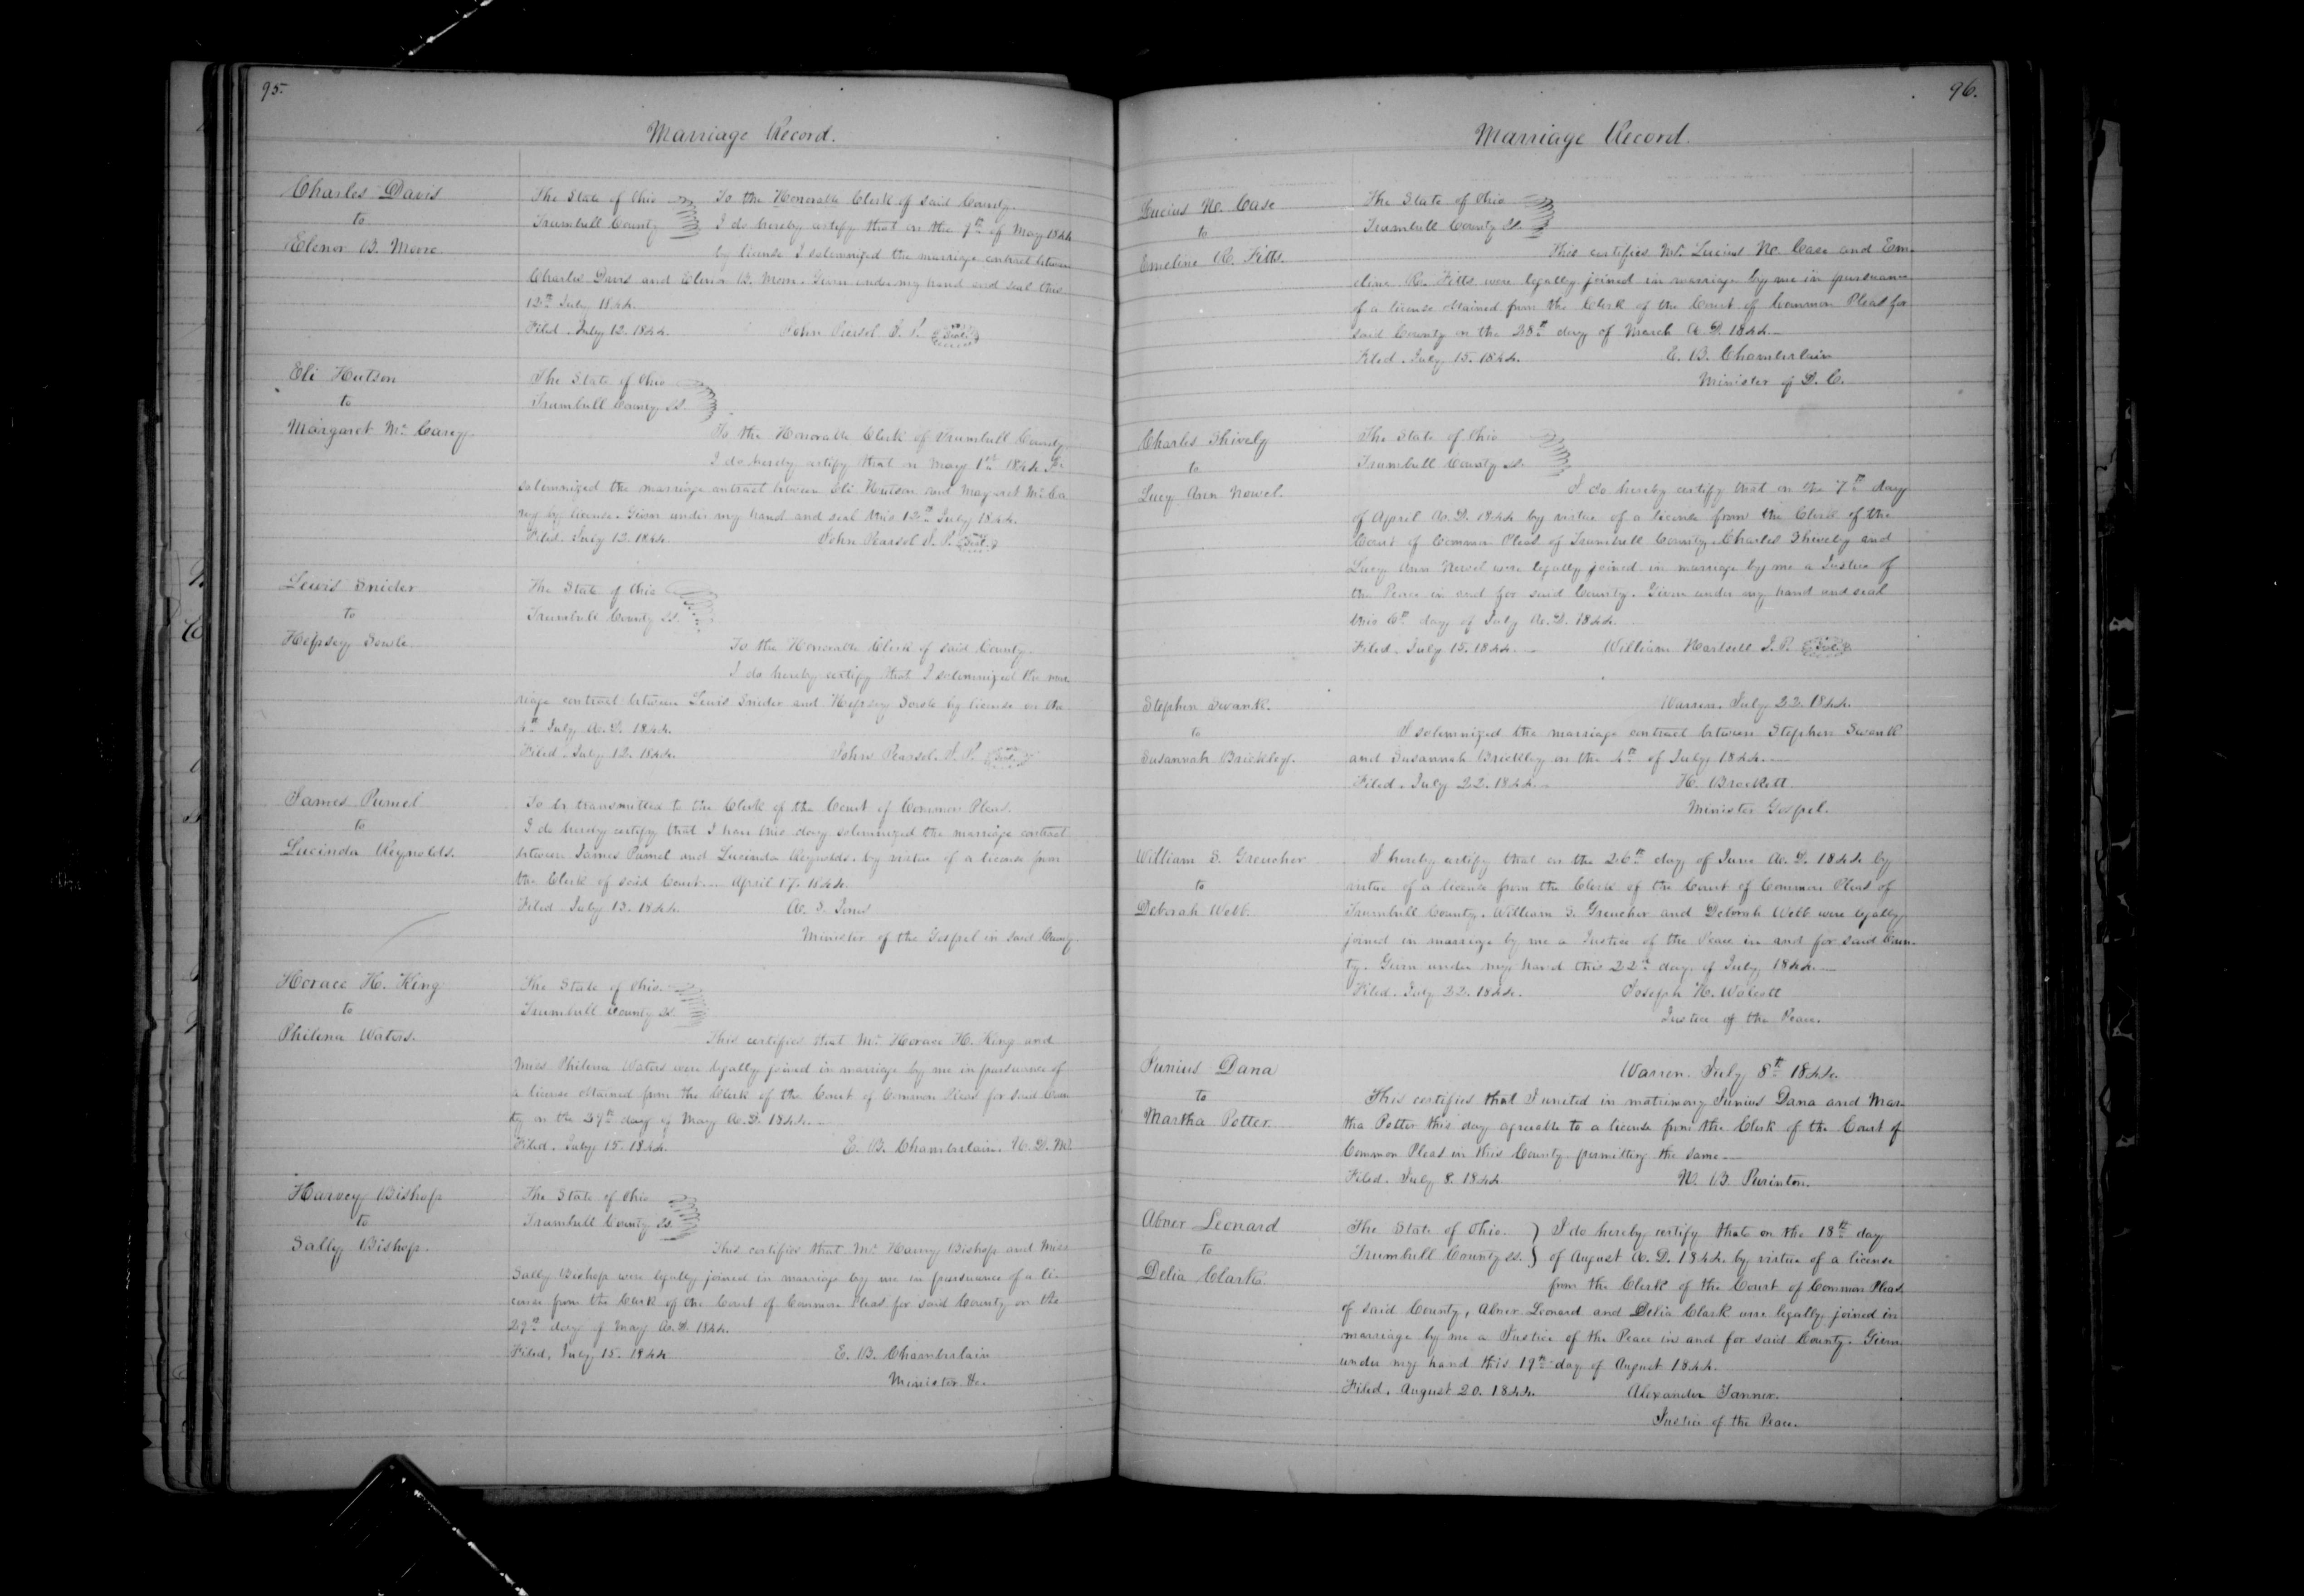 95.
Marriage Record.
Charles Davis
to
Elenor B. Moore
The State of Ohio
Trumbull County
To the Honorable Clerk of said County.
I do hereby certify that on the 7th of May 1844
by license I solemnized the marriage contract between
Charles Davis and Elenor B. Moore. Given under my hand and seal this
12th July 1844.
Filed. July 12. 1844. John Pearsol J. P. Seal
Eli Hutson
to
Margaret Mc Carey.
The State of Ohio
Trumbull County ss.
To the Honorable Clerk of Trumbull County
I do hereby certify that on May 1st 1844 I
solemnized the marriage contract between Eli Hutson and Margaret Mc Ca
rey by license. Given under my hand and seal this 12th July 1844.
Filed. July 12. 1844. John Pearsol J. P. Seal
Lewis Snider
to
Hepsey Sowle
The State of Ohio
Trumbull County ss.
To the Honorable Clerk of said County
I do hereby certify that I solemnized the mar
riage contract between Lewis Snider and Hepsey Sowle by license on the
4th July A. D. 1844.
Filed. July 12. 1844. John Pearsol. J. P. Seal
James Pumel
to
Lucinda Reynolds.
To be transmitted to the Clerk of the Court of Common Pleas.
I do hereby certify that I have this day solemnized the marriage contract
between James Pumel and Lucinda Reynolds. by virtue of a license from
the Clerk of said Court. April 17. 1844.
Filed July 13. 1844. A. S. Jones
Minister of the Gospel in said County.
Horace H. King
to
Philena Waters.
The State of Ohio.
Trumbull County ss.
This certifies that Mr. Horace H. King and
Miss Philena Waters were legally joined in marriage by me in pursuance of
a license obtained from the Clerk of the Court of Common Pleas for said Coun
ty on the 29th day of May A. D. 1844.
Filed. July 15. 1844. E. B. Chamberlain. V. D. M.
Harvey Bishop
to
Sally Bishop.
The State of Ohio
Trumbull County ss.
This certifies that Mr. Harvey Bishop and Miss
Sally Bishop were legally joined in marriage by me in pursuance of a li-
cense from the Clerk of the Court of Common Pleas for said County on the
29th day of May A. D. 1844.
Filed, July 15. 1844 E. B. Chamberlain
Minister &c.
96.
Marriage Record.
Lucius N. Case
to
Emeline R. Fitts.
The State of Ohio
Trumbull County ss.
This certifies Mr. Lucius N. Case and Em-
eline R. Fitts were legally joined in marriage by me in pursuance
of a license obtained from the Clerk of the Court of Common Pleas for
said County on the 28th day of March A. D. 1844.
Filed. July 15. 1844. E. B. Chamberlain
Minister of D. C.
Charles Shively
to
Lucy Ann Nowel.
The State of Ohio
Trumbull County ss.
I do hereby certify that on the 7th day
of April A. D. 1844 by virtue of a license from the Clerk of the
Court of Common Pleas of Trumbull County. Charles Shively and
Lucy Ann Nowel were legally joined in marriage by me a Justice of
the Peace in and for said County. Given under my hand and seal
this 6th day of July A. D. 1844.
Filed. July 15. 1844. William Hartzell J. P. Seal
Stephen Swank.
to
Susannah Brickley.
Warren. July 22. 1844.
I solemnized the marriage contract between Stephen Swank
and Susannah Brickley on the 4th of July 1844.
Filed. July 22. 1844. H. Brockett
Minister Gospel.
William S. Greucher
to
Deborah Webb.
I hereby certify that on the 26th day of June A. D. 1844 by
virtue of a license from the Clerk of the Court of Common Pleas of
Trumbull County. William S. Greucher and Deborah Webb were legally
joined in marriage by me a Justice of the Peace in and for said Coun-
ty. Given under my hand this 22d day of July 1844.
Filed. July 22. 1844. Joseph H. Wolcott
Justice of the Peace.
Junius Dana
to
Martha Potter
Warren. July 8th 1844.
This certifies that I united in matrimony Junius Dana and Mar-
tha Potter this day agreeable to a license from the Clerk of the Court of
Common Pleas in this County permitting the same
Filed. July 8. 1844 N. B. Purinton.
Abner Leonard
to
Delia Clark.
The State of Ohio. } I do hereby certify that on the 18th day
Trumbull County ss. } of August A. D. 1844 by virtue of a license
from the Clerk of the Court of Common Pleas
of said County, Abner Leonard and Delia Clark were legally joined in
marriage by me a Justice of the Peace in and for said County. Given
under my hand this 19th day of August 1844.
Filed. August 20. 1844. Alexander Tanner.
Justice of the Peace.